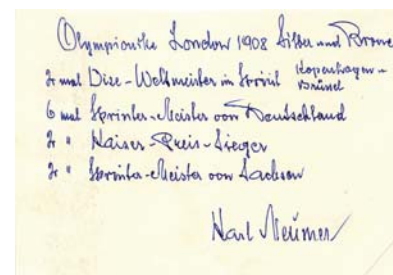 Olympionike London 1908 Silber und Bronce
2 mal Vize-Weltmeister im Sprint Kopenhagen -
Brüssel
6 mal Sprinter-Meister von Deutschland
2 " Kaiser-Preis-Sieger
2 " Sprinter-Meister von Sachsen
Karl Neumer